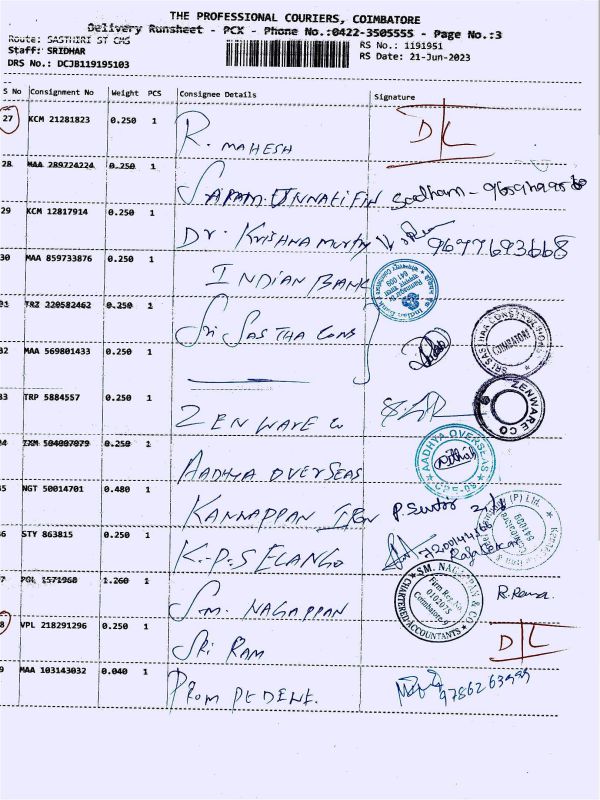 THE PROFESSIONAL COURIERS, COIMBATORE
Delivery Runsheet - PCX - Phone No.:0422-3505555 - Page No.:3
Route: SASTHIRI ST CMS
Staff: SRIDHAR
DRS No.: DCJB119195103
RS No.: 1191951
RS Date: 21-Jun-2023
S No Consignment No Weight PCS Consignee Details Signature
27 KCM 21281823 0.250 1 R. MAHESH D L
28 MAA 289724224 0.250 1
29 KCM 12817914 0.250 1 Dr. Krishna murthy 9697693668
30 MAA 859733876 0.250 1 INDIAN BANK
31 TRZ 220582462 0.250 1 Sri SASTHA Cons SRI SASTHA CONSTRUCTIONS COIMBATORE
32 MAA 569801433 0.250 1
33 TRP 5884557 0.250 1 ZENWARE Co ZENWARE CO
34 IXM 504007079 0.250 1 AADHYA OVERSEAS AADHYA OVERSEAS
35 NGT 50014701 0.480 1 KANNAPPAN IRON
36 STY 863815 0.250 1 K.P.S ELANGO
37 POL 1571968 1.260 1 S.M. NAGAPPAN S.M. NAGAPPAN & CO. Firm Reg. No. Coimbatore-9 CHARTERED ACCOUNTANTS
38 VPL 218291296 0.250 1 SRI RAM D L
39 MAA 103143032 0.040 1